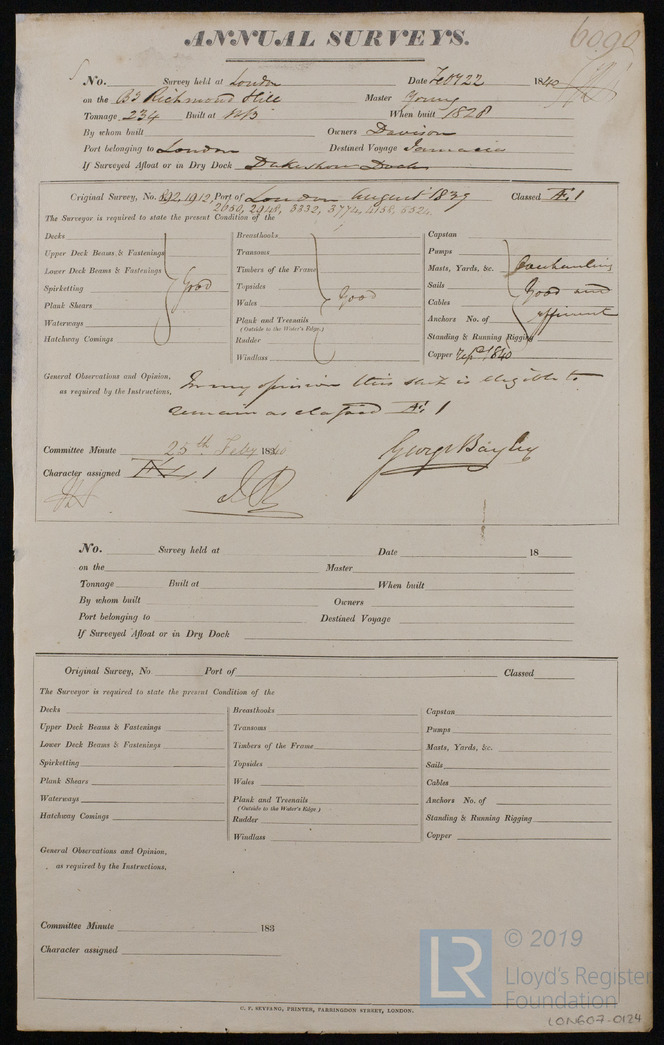 6090
ANNUAL SURVEYS.
No. Survey held at London Date Feby 22 1840
on the Bg Richmond Hill Master Young
Tonnage 234 Built at NB When built 1828
By whom built Owners Davison
Port belonging to London Destined Voyage Jamaica
If Surveyed Afloat or in Dry Dock Dukeshore Dock
Original Survey, No. 592, 1912, Port of London August 1839 Classed Æ 1
2050, 2948, 3332, 3774, 4158, 5524,
The Surveyor is required to state the present Condition of the
Decks
Upper Deck Beams & Fastenings
Lower Deck Beams & Fastenings
Spirketting Good
Plank Shears
Waterways
Hatchway Comings
Breasthooks
Transoms
Timbers of the Frame
Topsides
Wales Good
Plank and Treenails
(Outside to the Water's Edge.)
Rudder
Windlass
Capstan
Pumps
Masts, Yards, &c. Overhauling
Sails Good and
Cables
Anchors No. of efficient
Standing & Running Rigging
Copper 1840
General Observations and Opinion, In my opinion this ship is eligible to
as required by the Instructions, remain as classed Æ 1
Committee Minute 25th Feby 1840
George Bayley
Character assigned Æ 1
No. Survey held at Date 18
on the Master
Tonnage Built at When built
By whom built Owners
Port belonging to Destined Voyage
If Surveyed Afloat or in Dry Dock
Original Survey, No Port of Classed
The Surveyor is required to state the present Condition of the
Decks
Upper Deck Beams & Fastenings
Lower Deck Beams & Fastenings
Spirketting
Plank Shears
Waterways
Hatchway Comings
Breasthooks
Transoms
Timbers of the Frame
Topsides
Wales
Plank and Treenails
(Outside to the Water's Edge.)
Rudder
Windlass
Capstan
Pumps
Masts, Yards, &c.
Sails
Cables
Anchors No. of
Standing & Running Rigging
Copper
General Observations and Opinion,
as required by the Instructions,
Committee Minute 183
Character assigned
C. F. SEYFANG, PRINTER, FARRINGDON STREET, LONDON.
LR © 2019
Lloyd's Register
Foundation
LON607-0124